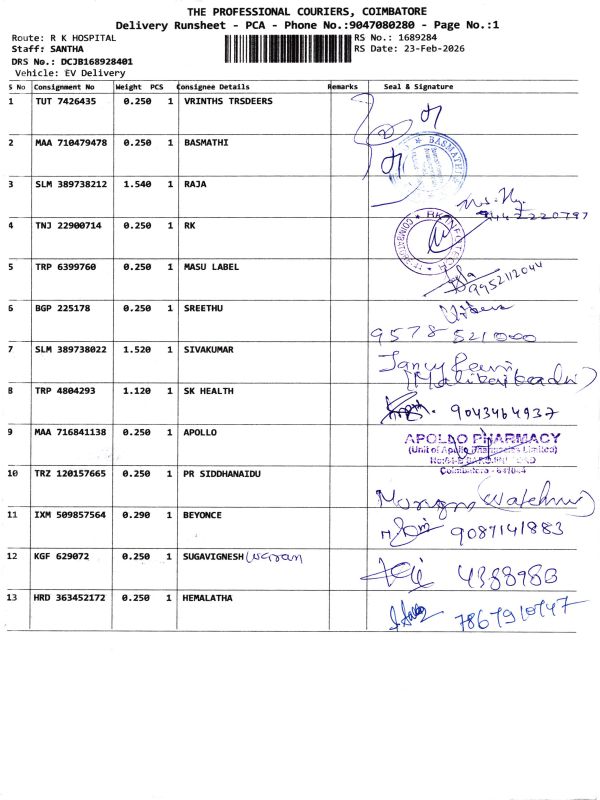 THE PROFESSIONAL COURIERS, COIMBATORE
Delivery Runsheet - PCA - Phone No.:9047080280 - Page No.:1
Route: R K HOSPITAL
RS No.: 1689284
Staff: SANTHA
RS Date: 23-Feb-2026
DRS No.: DCJB168928401
Vehicle: EV Delivery
S No Consignment No Weight PCS Consignee Details Remarks Seal & Signature
1 TUT 7426435 0.250 1 VRINTHS TRSDEERS
2 MAA 710479478 0.250 1 BASMATHI
BASMATHI
3 SLM 389738212 1.540 1 RAJA
9442220797
4 TNJ 22900714 0.250 1 RK
COIMBATORE
5 TRP 6399760 0.250 1 MASU LABEL
9952112044
6 BGP 225178 0.250 1 SREETHU
9578 521000
7 SLM 389738022 1.520 1 SIVAKUMAR
8 TRP 4804293 1.120 1 SK HEALTH
9043464937
9 MAA 716841138 0.250 1 APOLLO
APOLLO PHARMACY
(Unit of Apollo Pharmacies Limited)
Coimbatore
10 TRZ 120157665 0.250 1 PR SIDDHANAIDU
11 IXM 509857564 0.290 1 BEYONCE
9087141883
12 KGF 629072 0.250 1 SUGAVIGNESH
4388980
13 HRD 363452172 0.250 1 HEMALATHA
7867910947